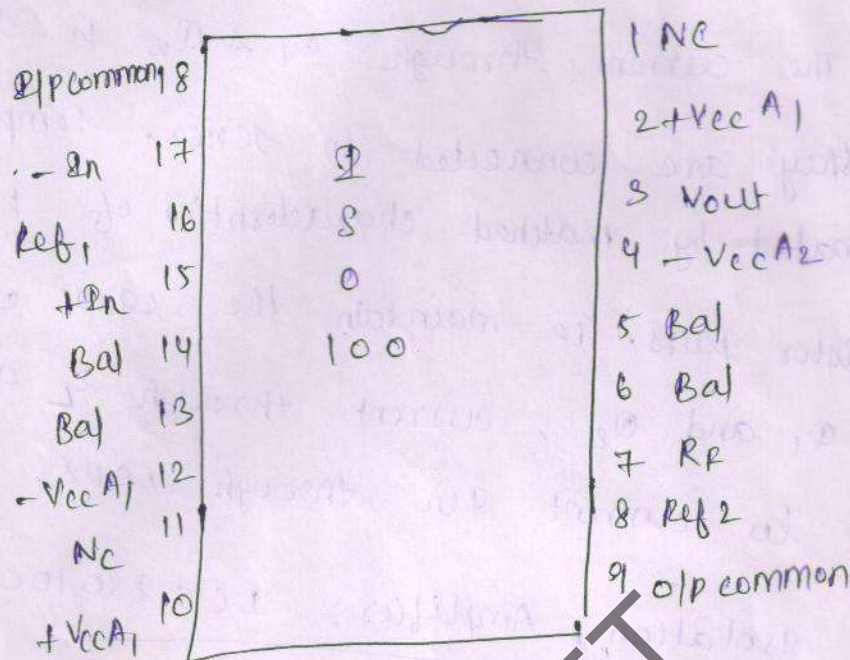 I/p common 18
- In 17
Ref1 16
+ In 15
Bal 14
Bal 13
- Vcc A1 12
NC 11
+ Vcc A1 10
I
S
0
100
1 NC
2 + Vcc A1
3 Vout
4 - Vcc A2
5 Bal
6 Bal
7 RF
8 Ref 2
9 o/p common